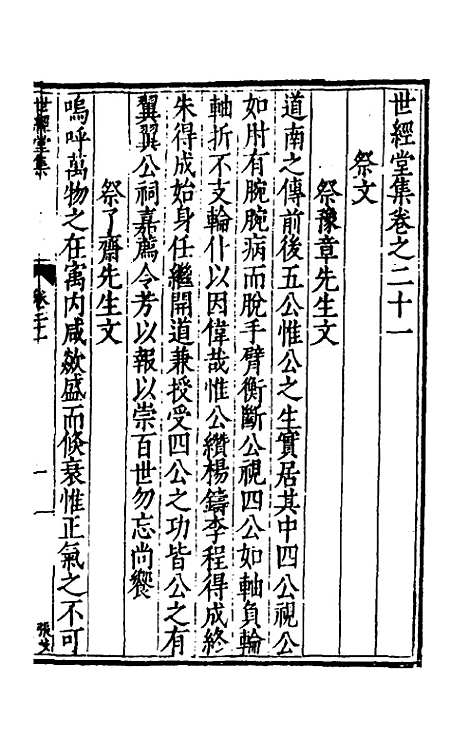 世經堂集卷之二十一
祭文
祭豫章先生文
道南之傳前後五公惟公之生實居其中四公視公
如肘有腕腕病而脫手臂衡斷公視四公如軸負輪
軸折不支輪仆以因偉哉惟公纘楊鑄李程得成終
朱得成始身任繼開道兼授受四公之功皆公之有
翼翼公祠嘉薦令芳以報以崇百世勿忘尚饗
祭了齋先生文
嗚呼萬物之在寓内咸歘盛而倏衰惟正氣之不可
世經堂集
卷二十一
一